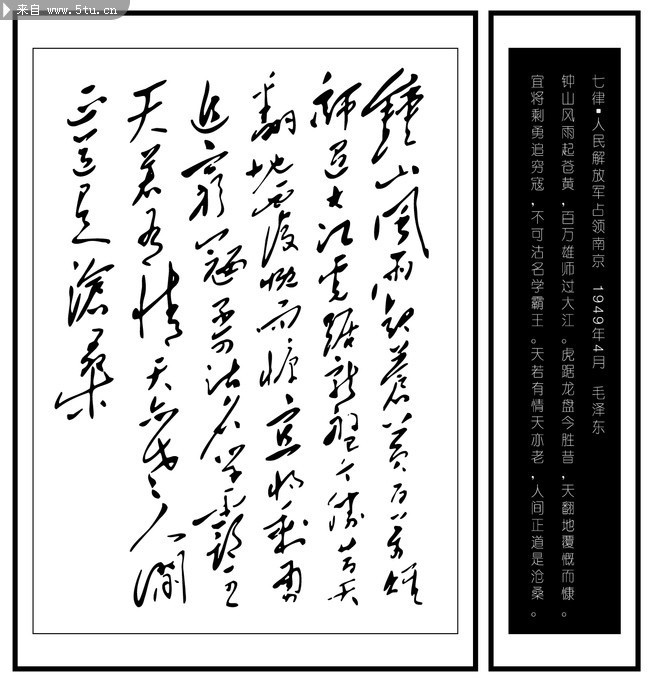 来自 www.5tu.cn
七律·人民解放军占领南京 1949年4月 毛泽东
钟山风雨起苍黄,百万雄师过大江。虎踞龙盘今胜昔,天翻地覆慨而慷。
宜将剩勇追穷寇,不可沽名学霸王。天若有情天亦老,人间正道是沧桑。
鐘山風雨起蒼黃百萬雄
師過大江虎踞龍盤今勝昔天
翻地覆慨而慷宜將剩勇
追窮寇不可沽名學霸王
天若有情天亦老人間
正道是滄桑